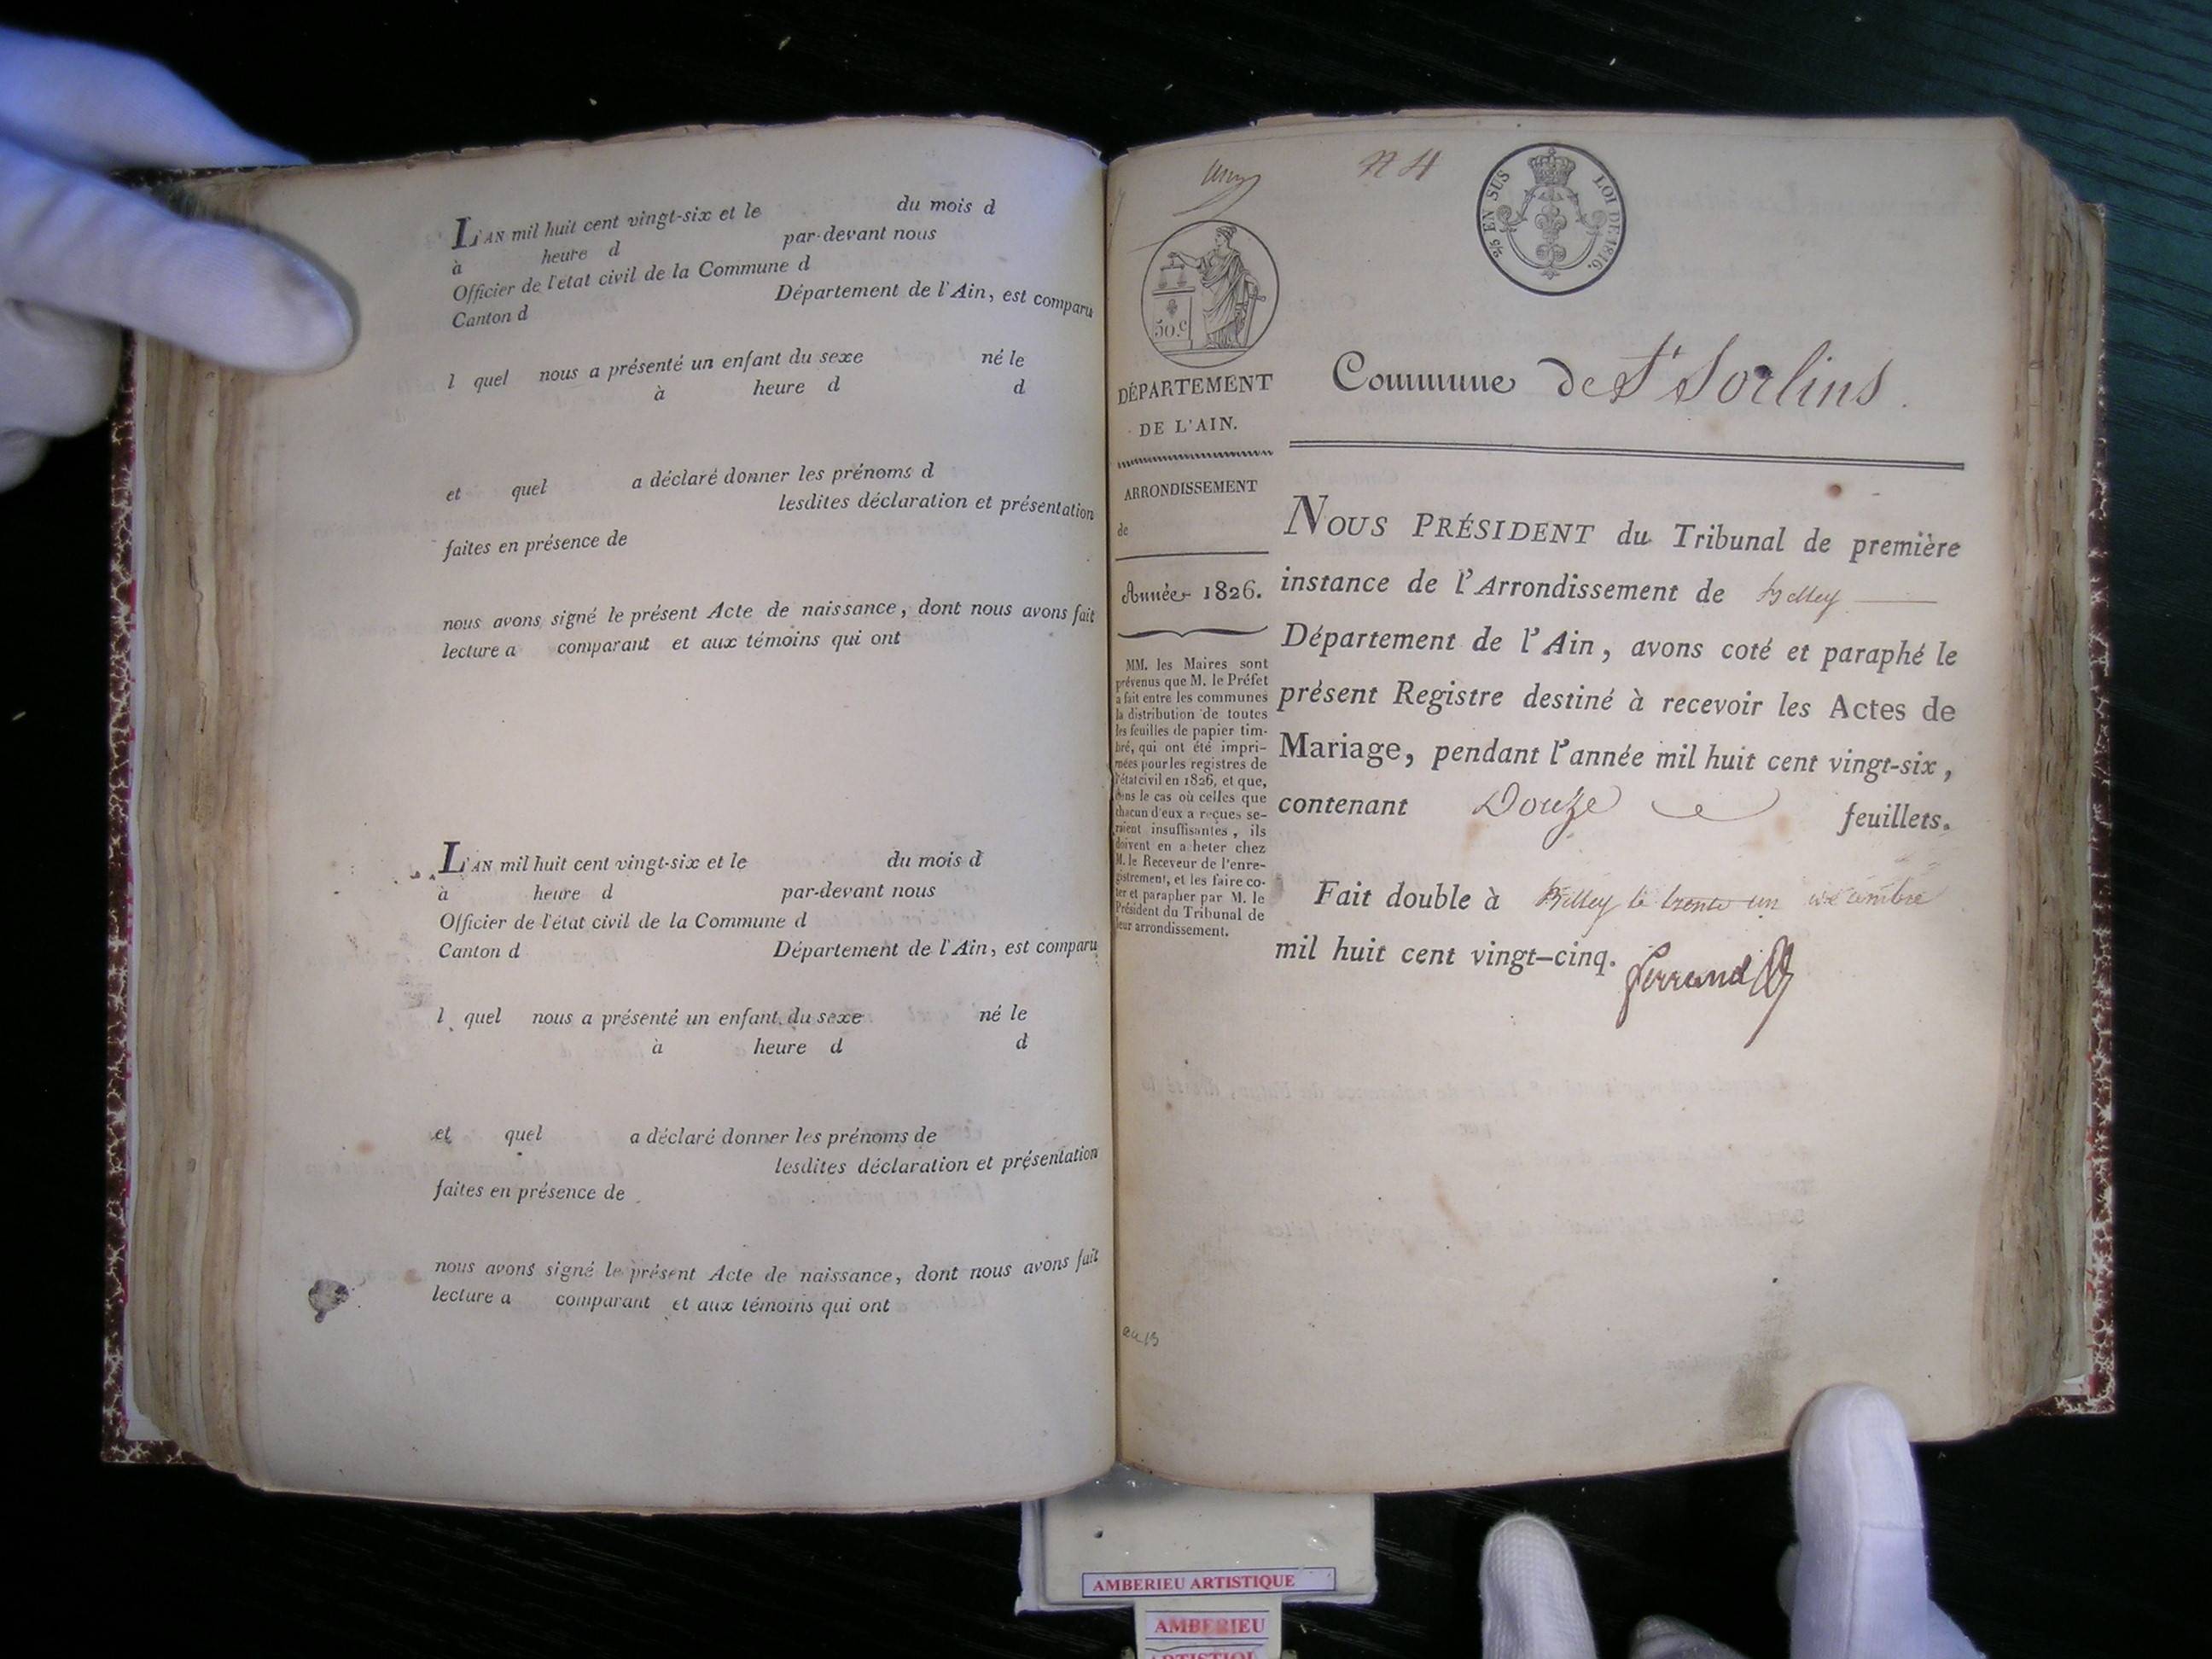 L'AN mil huit cent vingt-six et le du mois d
à heure d par-devant nous
Officier de l'état civil de la Commune d
Canton d Département de l'Ain, est comparu
l quel nous a présenté un enfant du sexe né le
à heure d d
et quel a déclaré donner les prénoms d
lesdites déclaration et présentation
faites en présence de
nous avons signé le présent Acte de naissance, dont nous avons fait
lecture a comparant et aux témoins qui ont
L'AN mil huit cent vingt-six et le du mois d
à heure d par-devant nous
Officier de l'état civil de la Commune d
Canton d Département de l'Ain, est comparu
l quel nous a présenté un enfant du sexe né le
à heure d d
et quel a déclaré donner les prénoms de
lesdites déclaration et présentation
faites en présence de
nous avons signé le présent Acte de naissance, dont nous avons fait
lecture a comparant et aux témoins qui ont
EN SUS LOI DE 1816.
50.c
DÉPARTEMENT
DE L'AIN.
ARRONDISSEMENT
de
Année 1826.
MM. les Maires sont
prévenus que M. le Préfet
a fait entre les communes
la distribution de toutes
les feuilles de papier tim-
bré, qui ont été impri-
mées pour les registres de
l'état civil en 1826, et que,
dans le cas où celles que
chacun d'eux a reçues se-
raient insuffisantes, ils
doivent en a heter chez
M. le Receveur de l'enre-
gistrement, et les faire co-
ter et parapher par M. le
Président du Tribunal de
leur arrondissement.
Commune de St Sorlins.
NOUS PRÉSIDENT du Tribunal de première
instance de l'Arrondissement de Belley
Département de l'Ain, avons coté et paraphé le
présent Registre destiné à recevoir les Actes de
Mariage, pendant l'année mil huit cent vingt-six,
contenant Douze feuillets.
Fait double à Belley le trente un décembre
mil huit cent vingt-cinq.
Ferrand
AMBERIEU ARTISTIQUE
AMBERIEU
ARTISTIQUE